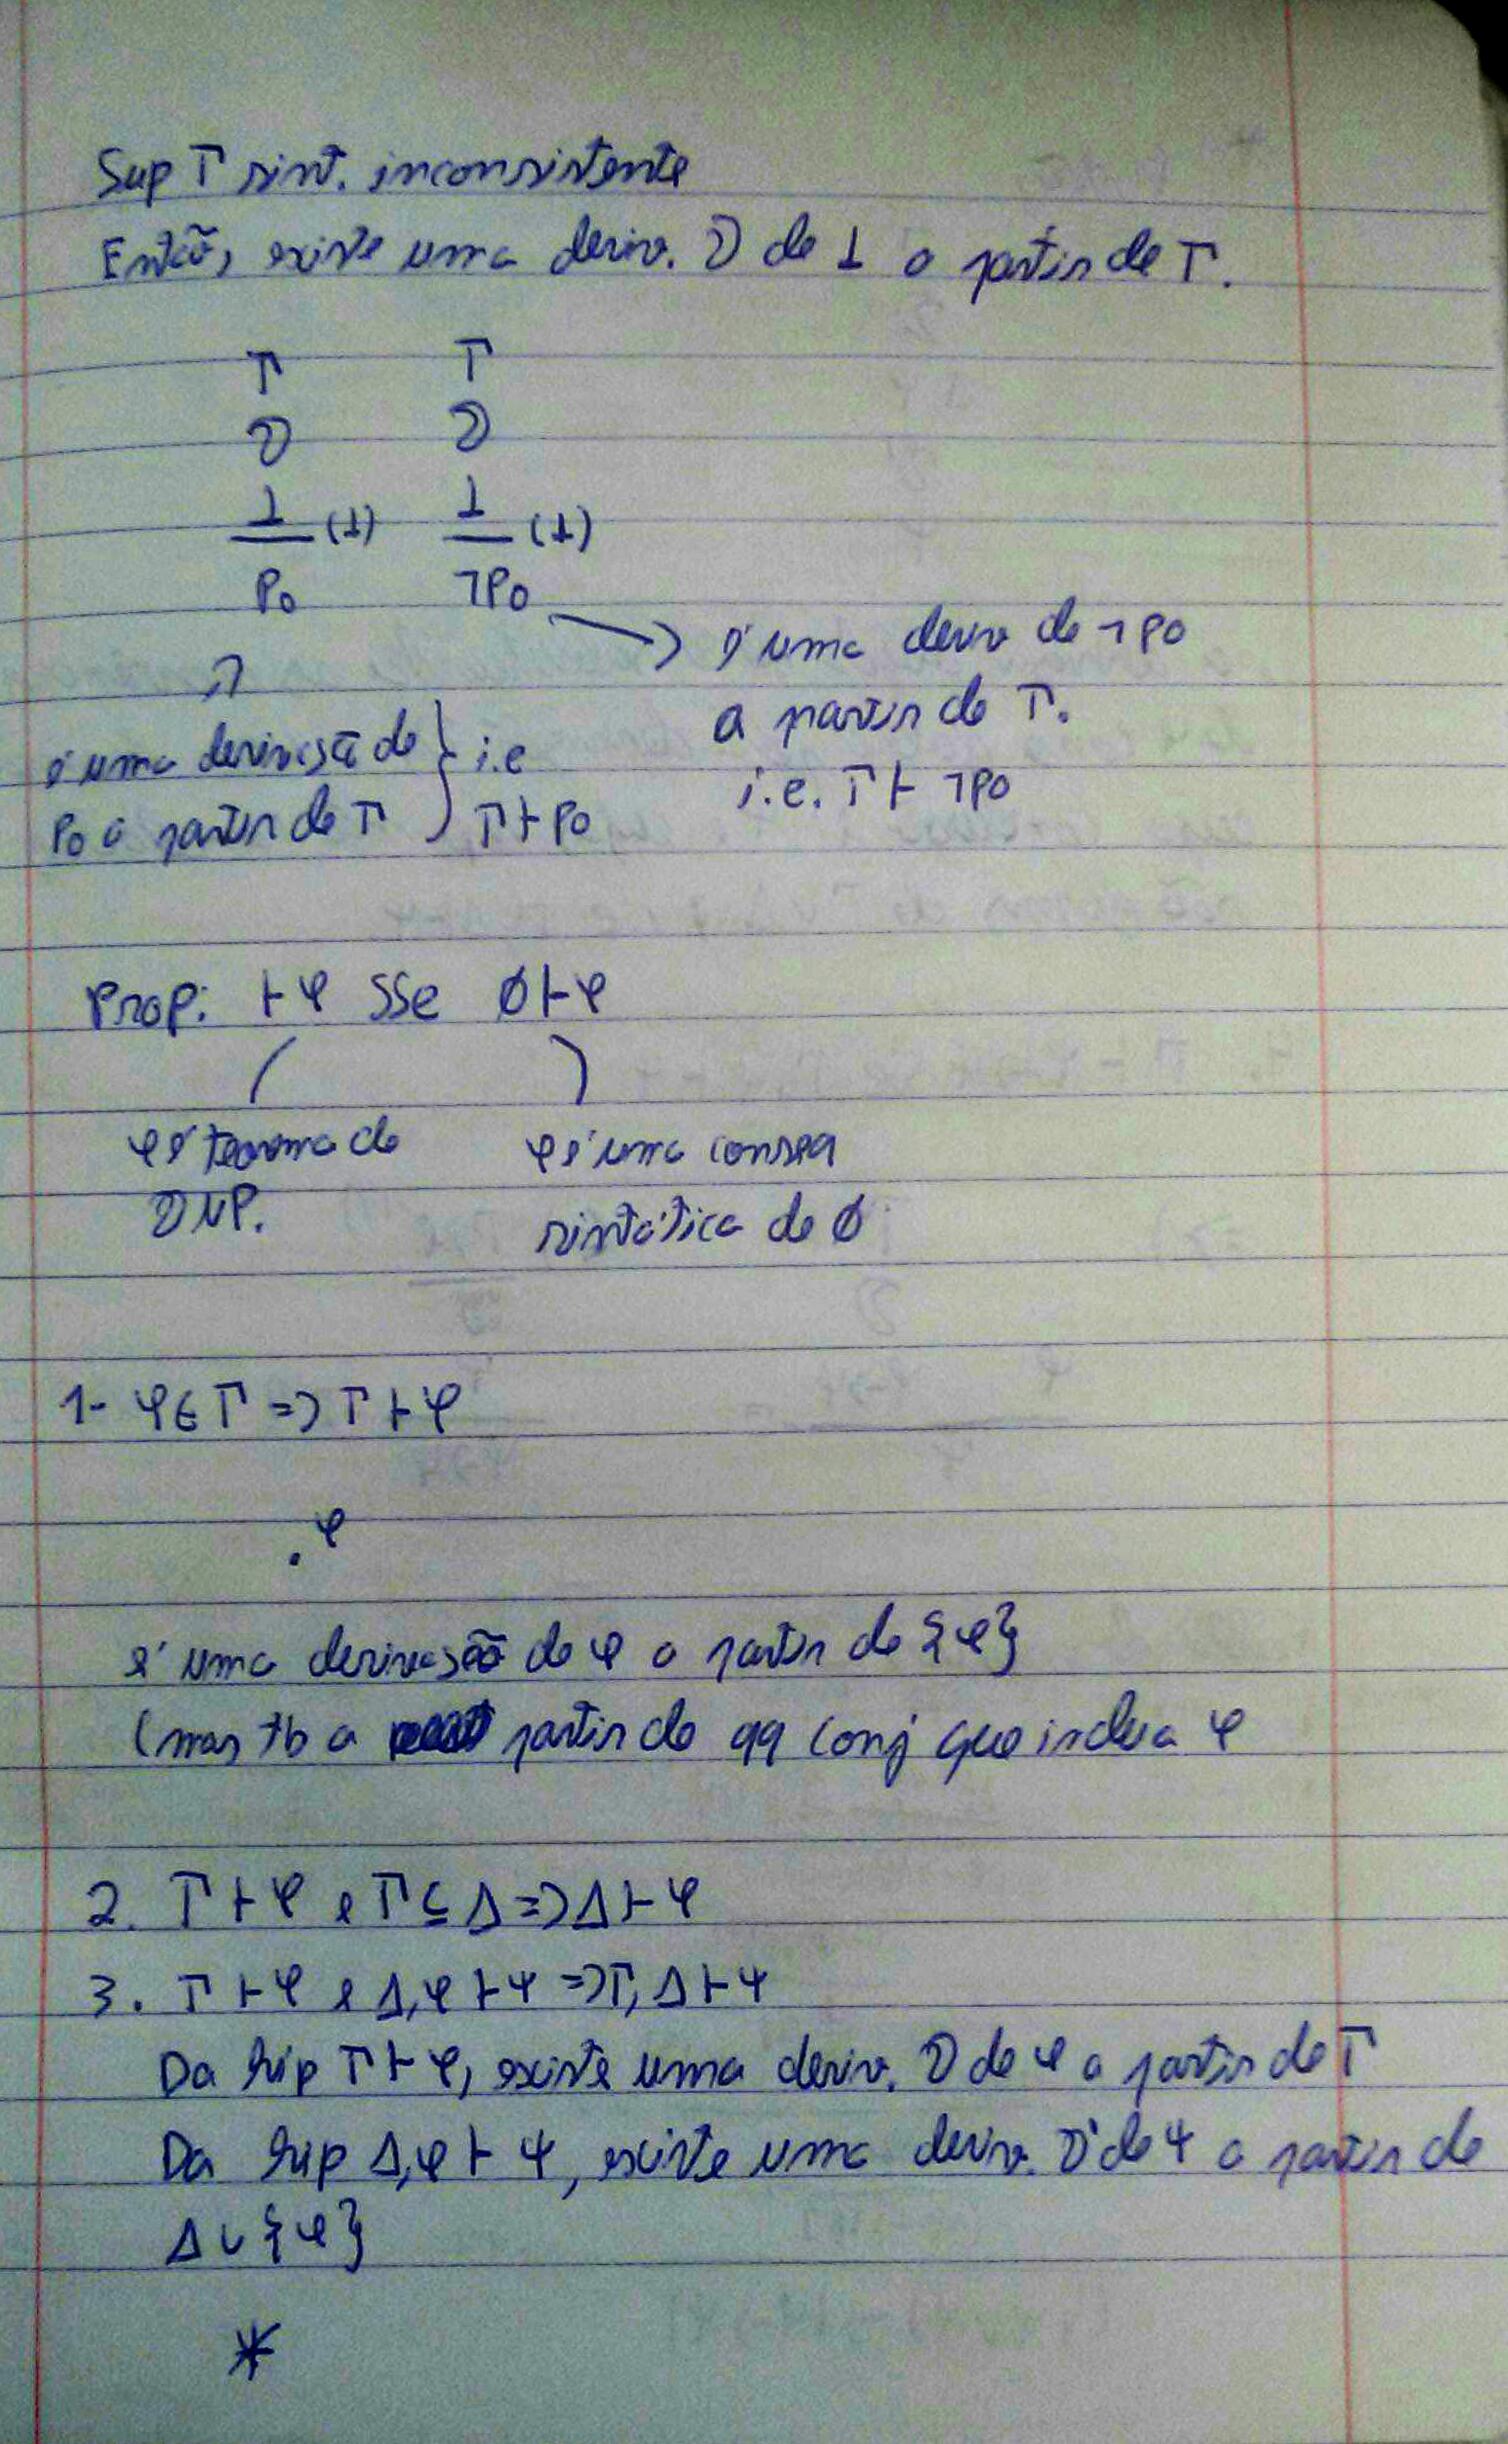 Sup Γ sint. inconsistente
Então, existe uma deriv. D de ⊥ a partir de Γ.
Γ Γ
D D
⊥ (⊥) ⊥ (⊥)
p0 ¬p0
é uma deriv de ¬p0
a partir de Γ.
i.e. Γ ⊢ ¬p0
é uma derivação de
p0 a partir de Γ } i.e
Γ ⊢ p0
Prop: ⊢ φ sse ∅ ⊢ φ
φ é teorema de
DNP.
φ é uma conseq
sintática de ∅
1- φ ∈ Γ => Γ ⊢ φ
. φ
é uma derivação de φ a partir de {φ}
(mas tb a partir de qq conj que inclua φ
2. Γ ⊢ φ e Γ ⊆ Δ => Δ ⊢ φ
3. Γ ⊢ φ e Δ, φ ⊢ ψ => Γ, Δ ⊢ ψ
Da hip Γ ⊢ φ, existe uma deriv. D de φ a partir de Γ
Da hip Δ, φ ⊢ ψ, existe uma deriv. D' de ψ a partir de
Δ ∪ {φ}
*